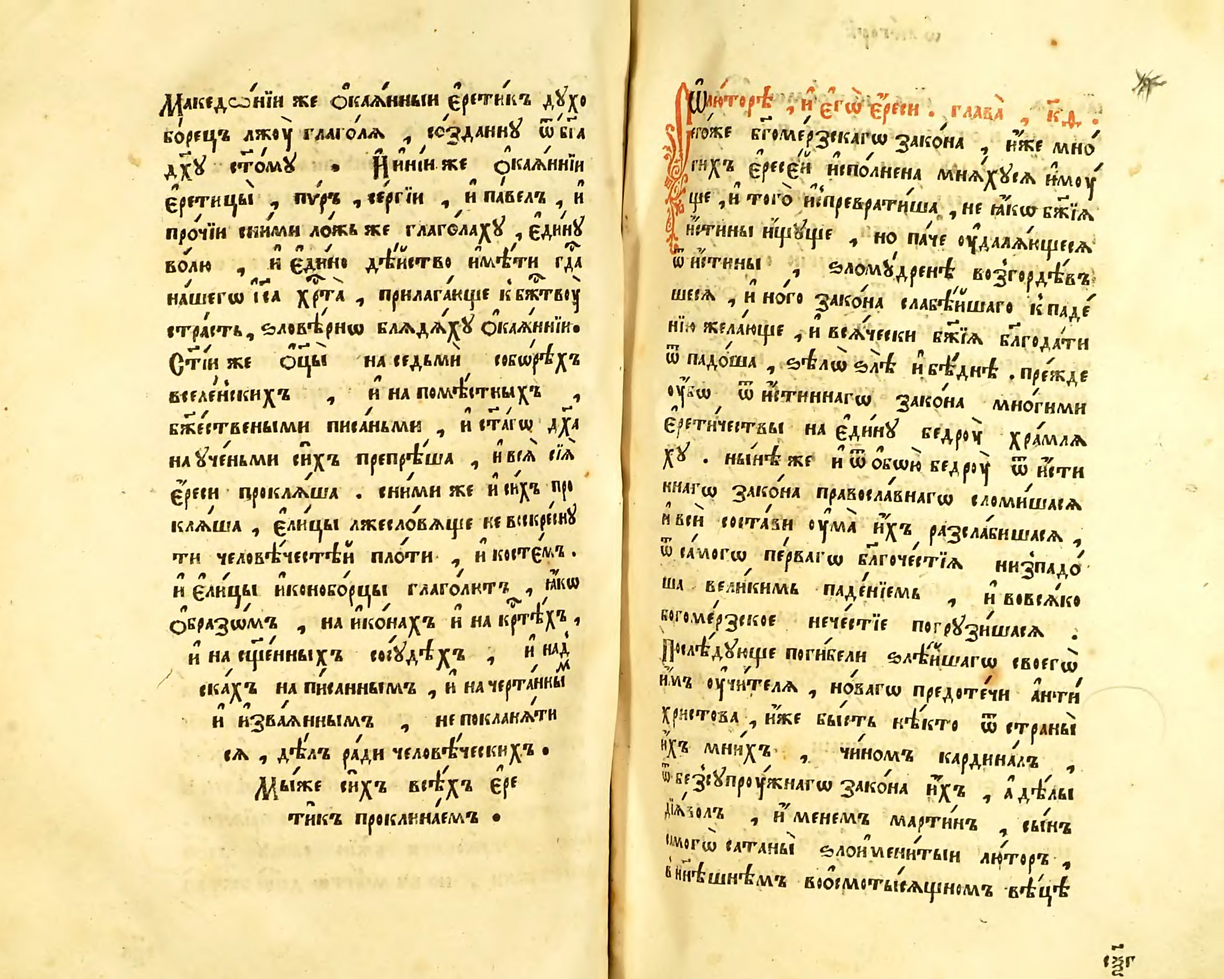 Македѡ́нїи же ѻ҆каѧ́нныи є҆рети́къ дꙋхо
бо́рецъ лжоу̀ глаго́лѧ , со́зданнꙋ ѿ бг҃а
дх҃ꙋ ст҃о́мꙋ . И҆нїи же ѻ҆каѧ́ннїи
є҆рети́цы̀ , пꙋ́ръ , се́ргїи , и҆ па́велъ , и҆
про́чїи сни́ми ло́жь же глаго́лахꙋ , є҆ди́нꙋ
во́лю , и҆ є҆ди́но дѣ́йство и҆мѣ́ти гд҃а
на́шегѡ і҆с҃а хрⷭ҇та̀ , прилага́юще к бж҃твоу̀
стра́сть , ѕловѣ́рнѡ блѧдѧ́хꙋ ѻ҆каѧ́ннїи .
Ст҃і́и же ѻ҆ц҃ы̀ на седьмѝ собо́рѣхъ
вселе́нскихъ , и҆ на помѣ́стныхъ ,
бж҃е́ствеными писа́ньми , и҆ ст҃а́гѡ дх҃а
на ꙋче́ньми си́хъ препрѣ́ша , и҆ всѧ̀ сїѧ̀
є҆́реси проклѧ́ша . сни́ми же и҆ си́хъ про
клѧ́ша , є҆ли́цы лжесло́вѧще не воскре́снꙋ
ти человѣ́честѣй пло́ти , и҆ косте́мъ .
и҆ є҆ли́цы и҆конобо́рцы глаго́лютъ , ꙗ҆́кѡ
ѻ҆бразѡ́мъ , на и҆ко́нахъ и҆ на крⷭ҇тѣ́хъ ,
и҆ на сщ҃е́нныхъ сосꙋ́дѣхъ , и҆ на д
ска́хъ на пи́санным̾ъ , и҆ на че́ртанныⷨ
и҆ и҆зваѧ́нным̾ъ , не покланѧ́ти
сѧ , дѣ́лъ ра́ди человѣ́ческихъ .
Мы́же си́хъ всѣ́хъ є҆ре
ти́къ проклина́емъ .
Ѿ лю́торѣ , и҆ є҆гѡ̀ є҆́реси . глава̀ , к҃д .
І҆его́же бг҃оме́рзскагѡ зако́на , и҆́же мно́
гихъ є҆ресе́й и҆спо́лнена мнѧ́хꙋсѧ и҆моу́
ще , и҆ того̀ и҆спреврати́ша , не ꙗ҆́кѡ бж҃їѧ
и҆́стины и҆́щꙋще , но па́че оу҆далѧ́ющесѧ
ѿ и҆́стины , ѕломꙋ́дренѣ возгордѣ́въ
шесѧ , и҆ но́го зако́на слабѣ́йшаго к паде́
нїю жела́юще , и҆ всѧ́чески бж҃їѧ бл҃года́ти
ѿ падо́ша , ѕѣ́лѡ ѕлѣ̀ и҆ бѣ́днѣ . пре́жде
оу҆́бѡ ѿ и҆́стиннагѡ зако́на мно́гими
є҆рети́чествы на є҆ди́нꙋ бедроу̀ хра́млѧ
хꙋ . ны́нѣ же и҆ ѿ ѻ҆бѡи́ бедроу̀ ѿ и҆́сти
ннагѡ зако́на правосла́внагѡ сломи́шасѧ
и҆ всѝ соста́ви оу҆ма̀ и҆́хъ разсла́бишасѧ ,
ѿ са́могѡ пе́рвагѡ бл҃гоче́стїѧ низпадо́
ша вели́кимь паде́нїемь , и҆ вовсѧ́ко
богоме́рзское нече́стїе погрꙋзи́шасѧ .
Послѣ́дꙋюще поги́бели ѕлѣ́йшагѡ своегѡ̀
и҆́мъ оу҆чи́телѧ , но́вагѡ предоте́чи а҆нти́
христова , и҆́же бы́сть нѣ́кто ѿ страны̀
и҆́хъ мни́хъ , чи́номъ кардина́лъ ,
ѿ безсꙋпроу́жнагѡ зако́на и҆́хъ , а҆ дѣ́лы
дїѧ́волъ , и҆́менемъ марти́нъ , сы́нъ
самогѡ̀ сатаны̀ ѕлои́мени́тыи лю́торъ ,
в нн҃ѣшнѣмъ воо́смотысѧщномъ вѣ́цѣ